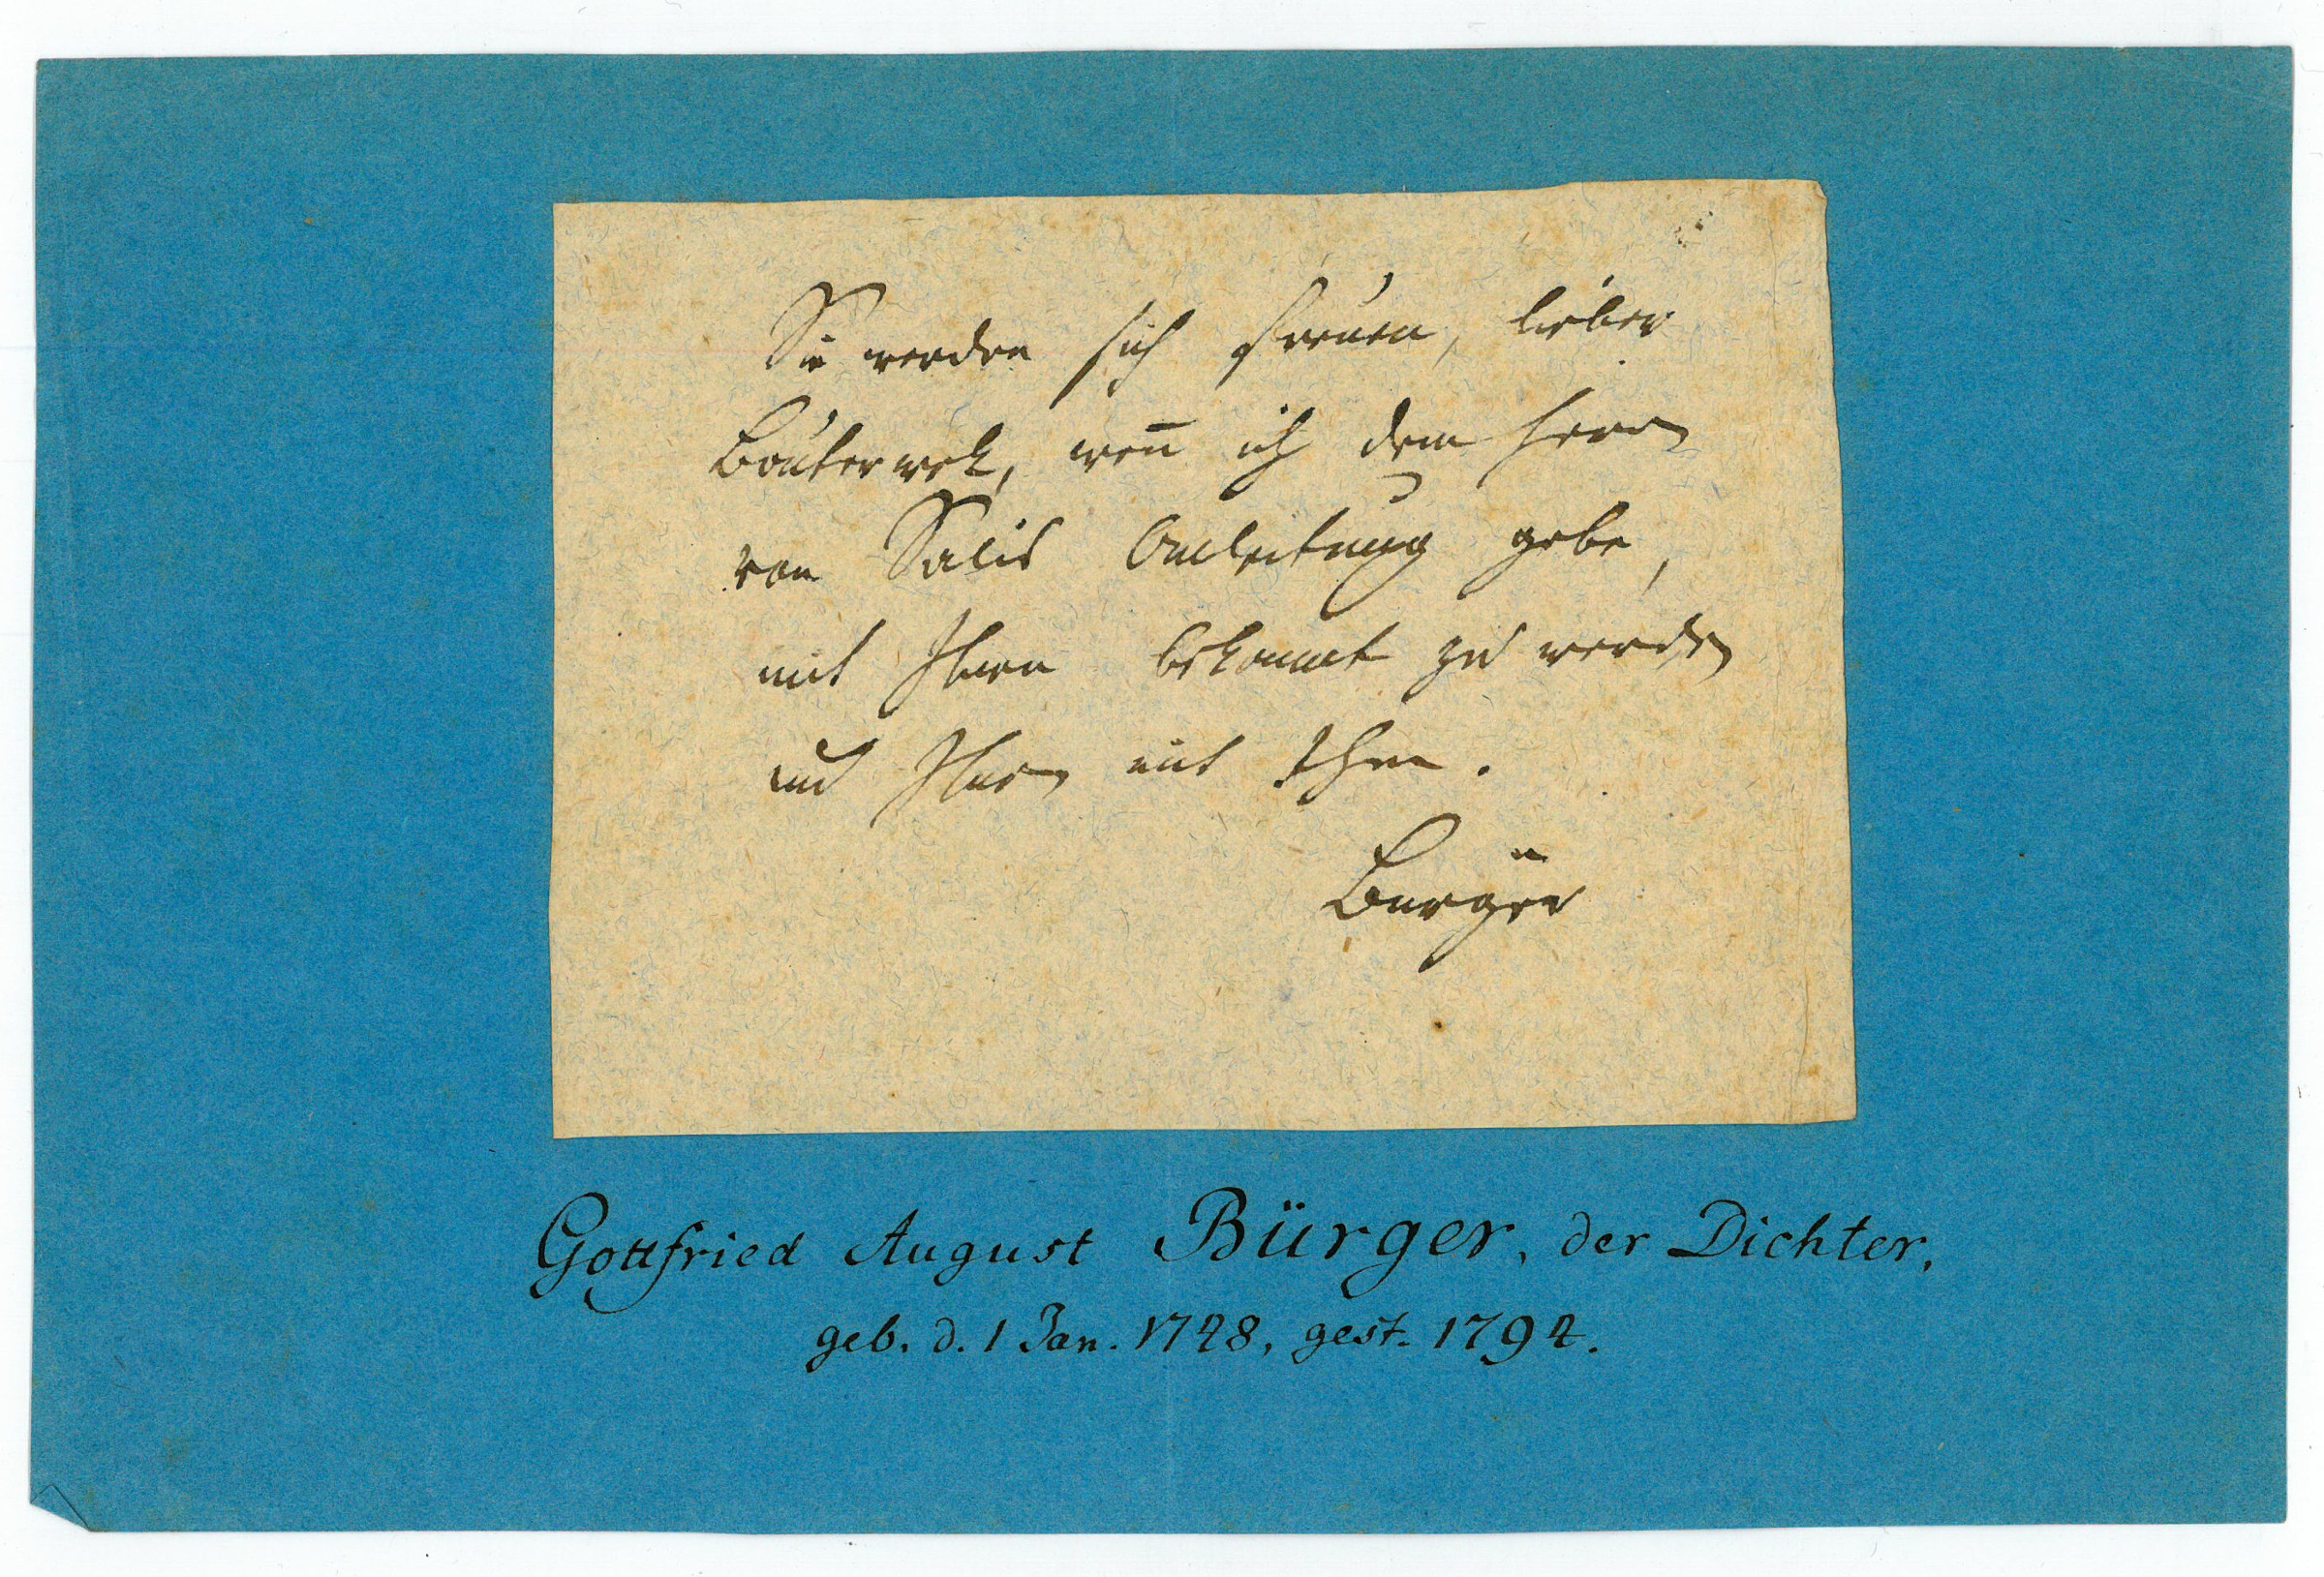 Sie werden sich freuen, lieber
Bouterwek, wen̄ ich dem Herrn
von Salis Anleitung gebe,
mit Ihnen bekannt zu werden
und Ihnen mit Ihm.
Bürger
Gottfried August Bürger, der Dichter,
geb. d. 1 Jan. 1748, gest. 1794.